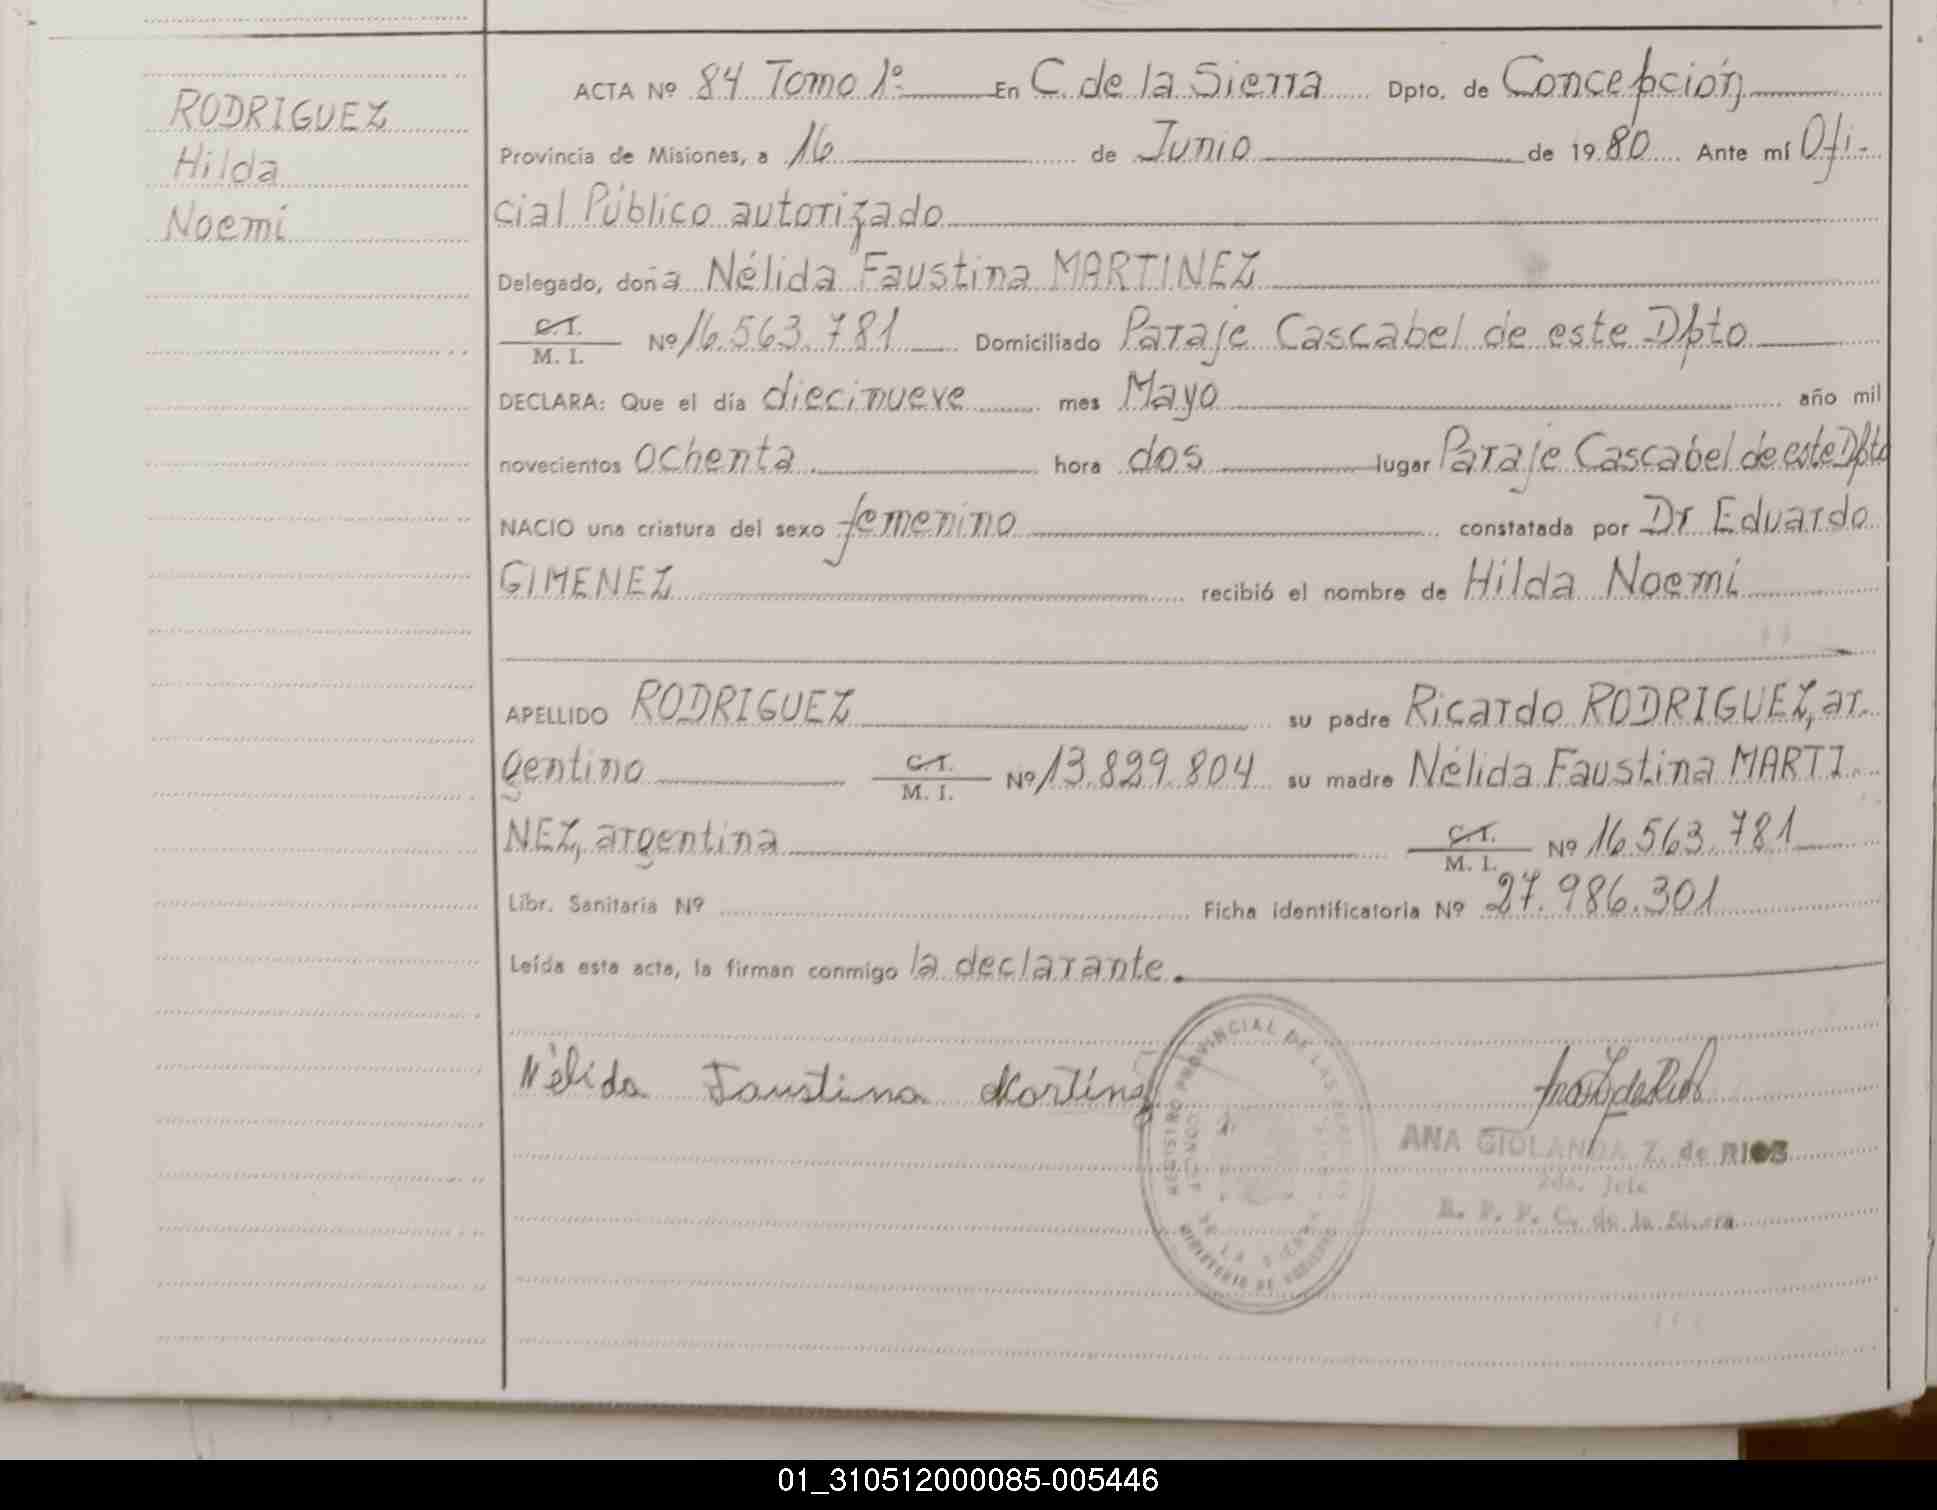 RODRIGUEZ
Hilda
Noemí
ACTA Nº 84 Tomo 1º En C. de la Sierra Dpto. de Concepción
Provincia de Misiones, a 16 de Junio de 1980 Ante mí Ofi-
cial Público autorizado
Delegado, doña Nélida Faustina MARTINEZ
C.I.
M. I. Nº 16.563.781 Domiciliado Paraje Cascabel de este Dpto
DECLARA: Que el día diecinueve mes Mayo año mil
novecientos ochenta hora dos lugar Paraje Cascabel de este Dpto
NACIO una criatura del sexo femenino constatada por Dr Eduardo
GIMENEZ recibió el nombre de Hilda Noemí
APELLIDO RODRIGUEZ su padre Ricardo RODRIGUEZ, ar-
gentino C.I.
M. I. Nº 13.829.804 su madre Nélida Faustina MARTI-
NEZ, argentina C.I.
M. I. Nº 16.563.781
Libr. Sanitaria Nº Ficha identificatoria Nº 27.986.301
Leída esta acta, la firman conmigo la declarante.
Nélida Faustina Martinez
REGISTRO PROVINCIAL DE LAS
DE LA SIERRA
MINISTERIO DE GOBIERNO
ANA GIOLANDA Z. de RIOS
2da. Jefe
R. P. P. C. de la Sierra
01_310512000085-005446